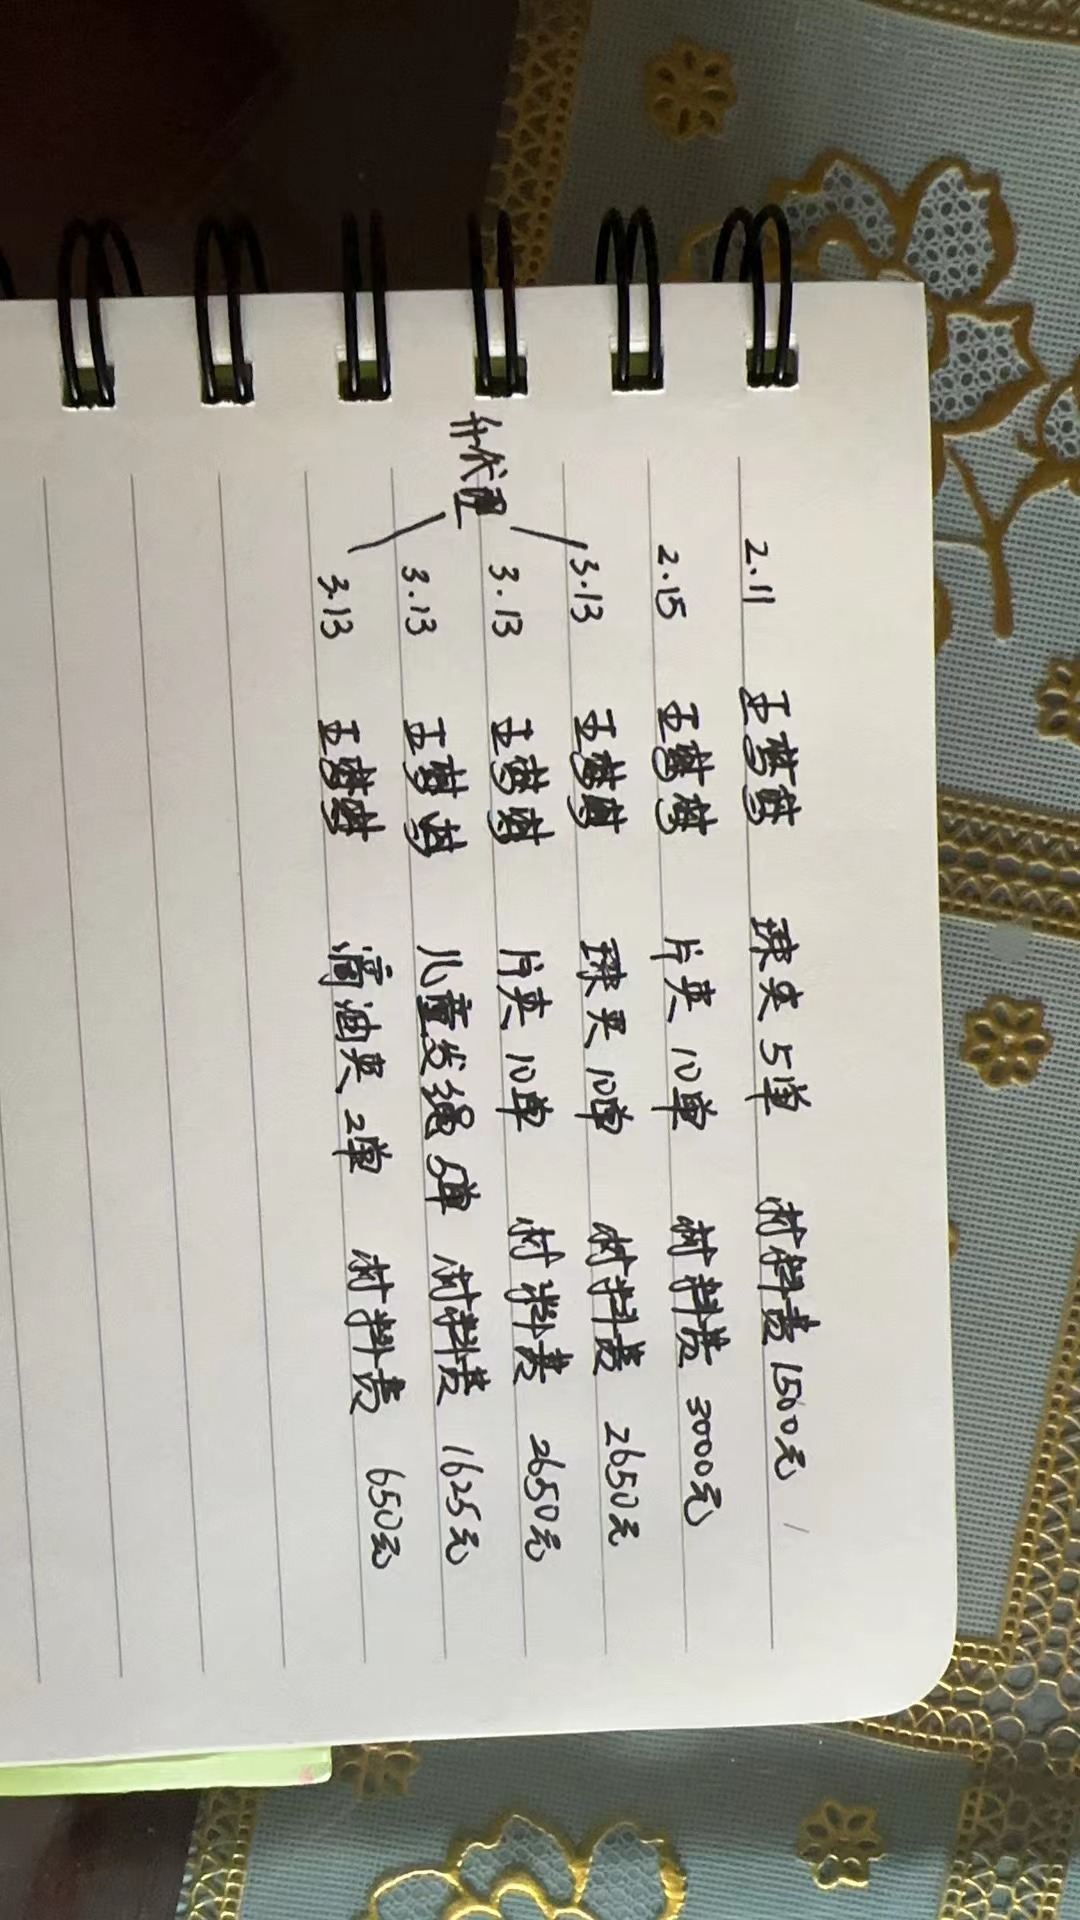 2.11 王梦梦 珠夹 5单 材料费 1500元
2.15 王梦梦 片夹 10单 材料费 3000元
3.13 王梦梦 珠夹 10单 材料费 2650元
3.13 王梦梦 片夹 10单 材料费 2650元
升代理
3.13 王梦梦 儿童发绳 5单 材料费 1625元
3.13 王梦梦 滴油夹 2单 材料费 650元